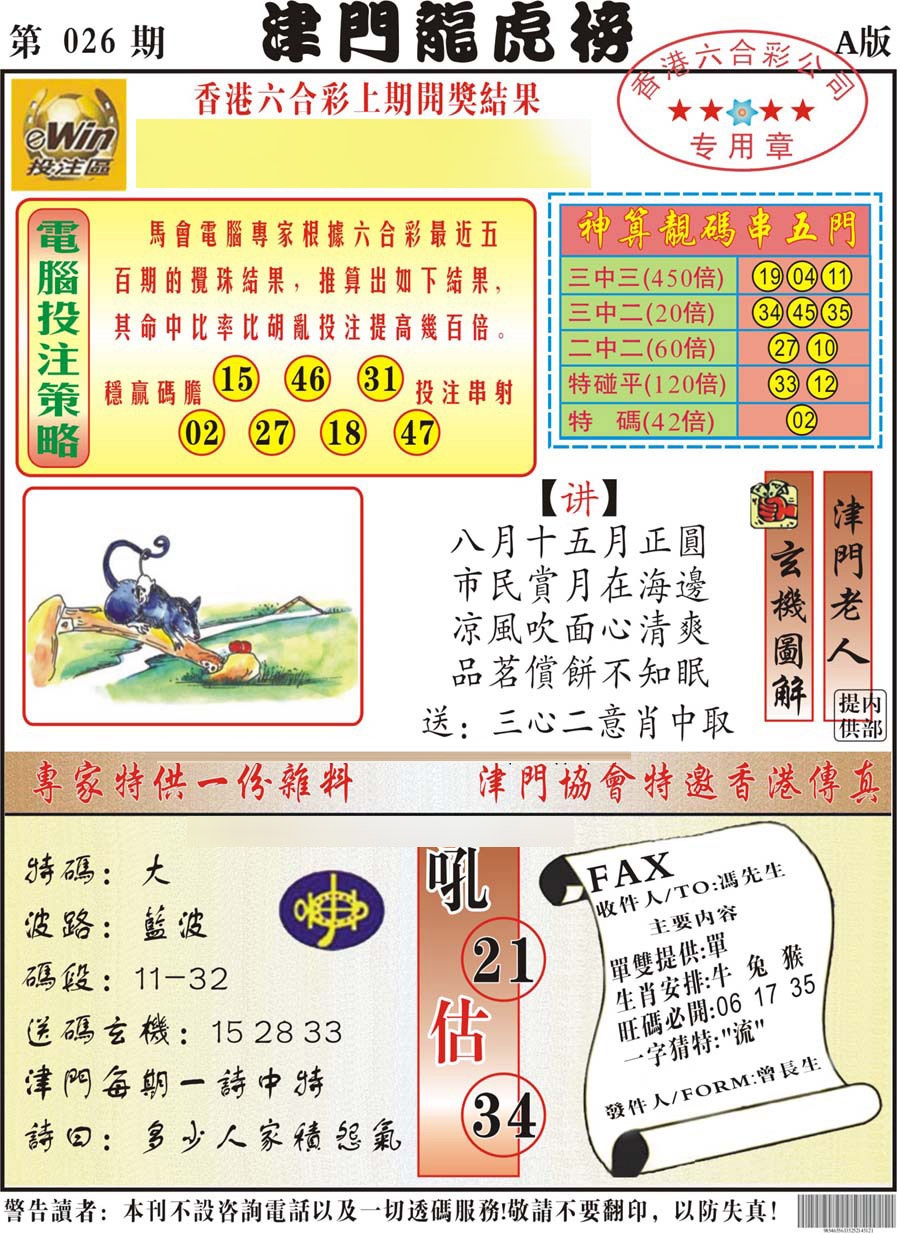 第 026 期
津門龍虎榜
A版
eWin
投注區
香港六合彩上期開獎結果
香港六合彩公司
专用章
電腦投注策略
馬會電腦專家根據六合彩最近五
百期的攪珠結果，推算出如下結果，
其命中比率比胡亂投注提高幾百倍。
穩贏碼膽 15 46 31 投注串射
02 27 18 47
神算靚碼串五門
三中三(450倍) 19 04 11
三中二(20倍) 34 45 35
二中二(60倍) 27 10
特碰平(120倍) 33 12
特 碼(42倍) 02
【讲】
八月十五月正圓
市民賞月在海邊
凉風吹面心清爽
品茗償餅不知眠
送：三心二意肖中取
玄機圖解
津門老人
提供
内部
專家特供一份雜料
津門協會特邀香港傳真
特碼：大
波路：藍波
碼段：11-32
送碼玄機：15 28 33
津門每期一詩中特
詩曰：多少人家積怨氣
吼
21
估
34
FAX
收件人/TO:馮先生
主要内容
單雙提供:單
生肖安排:牛 兔 猴
旺碼必開:06 17 35
一字猜特:"流"
發件人/FORM:曾長生
警告讀者：本刊不設咨詢電話以及一切透碼服務!敬請不要翻印，以防失真！